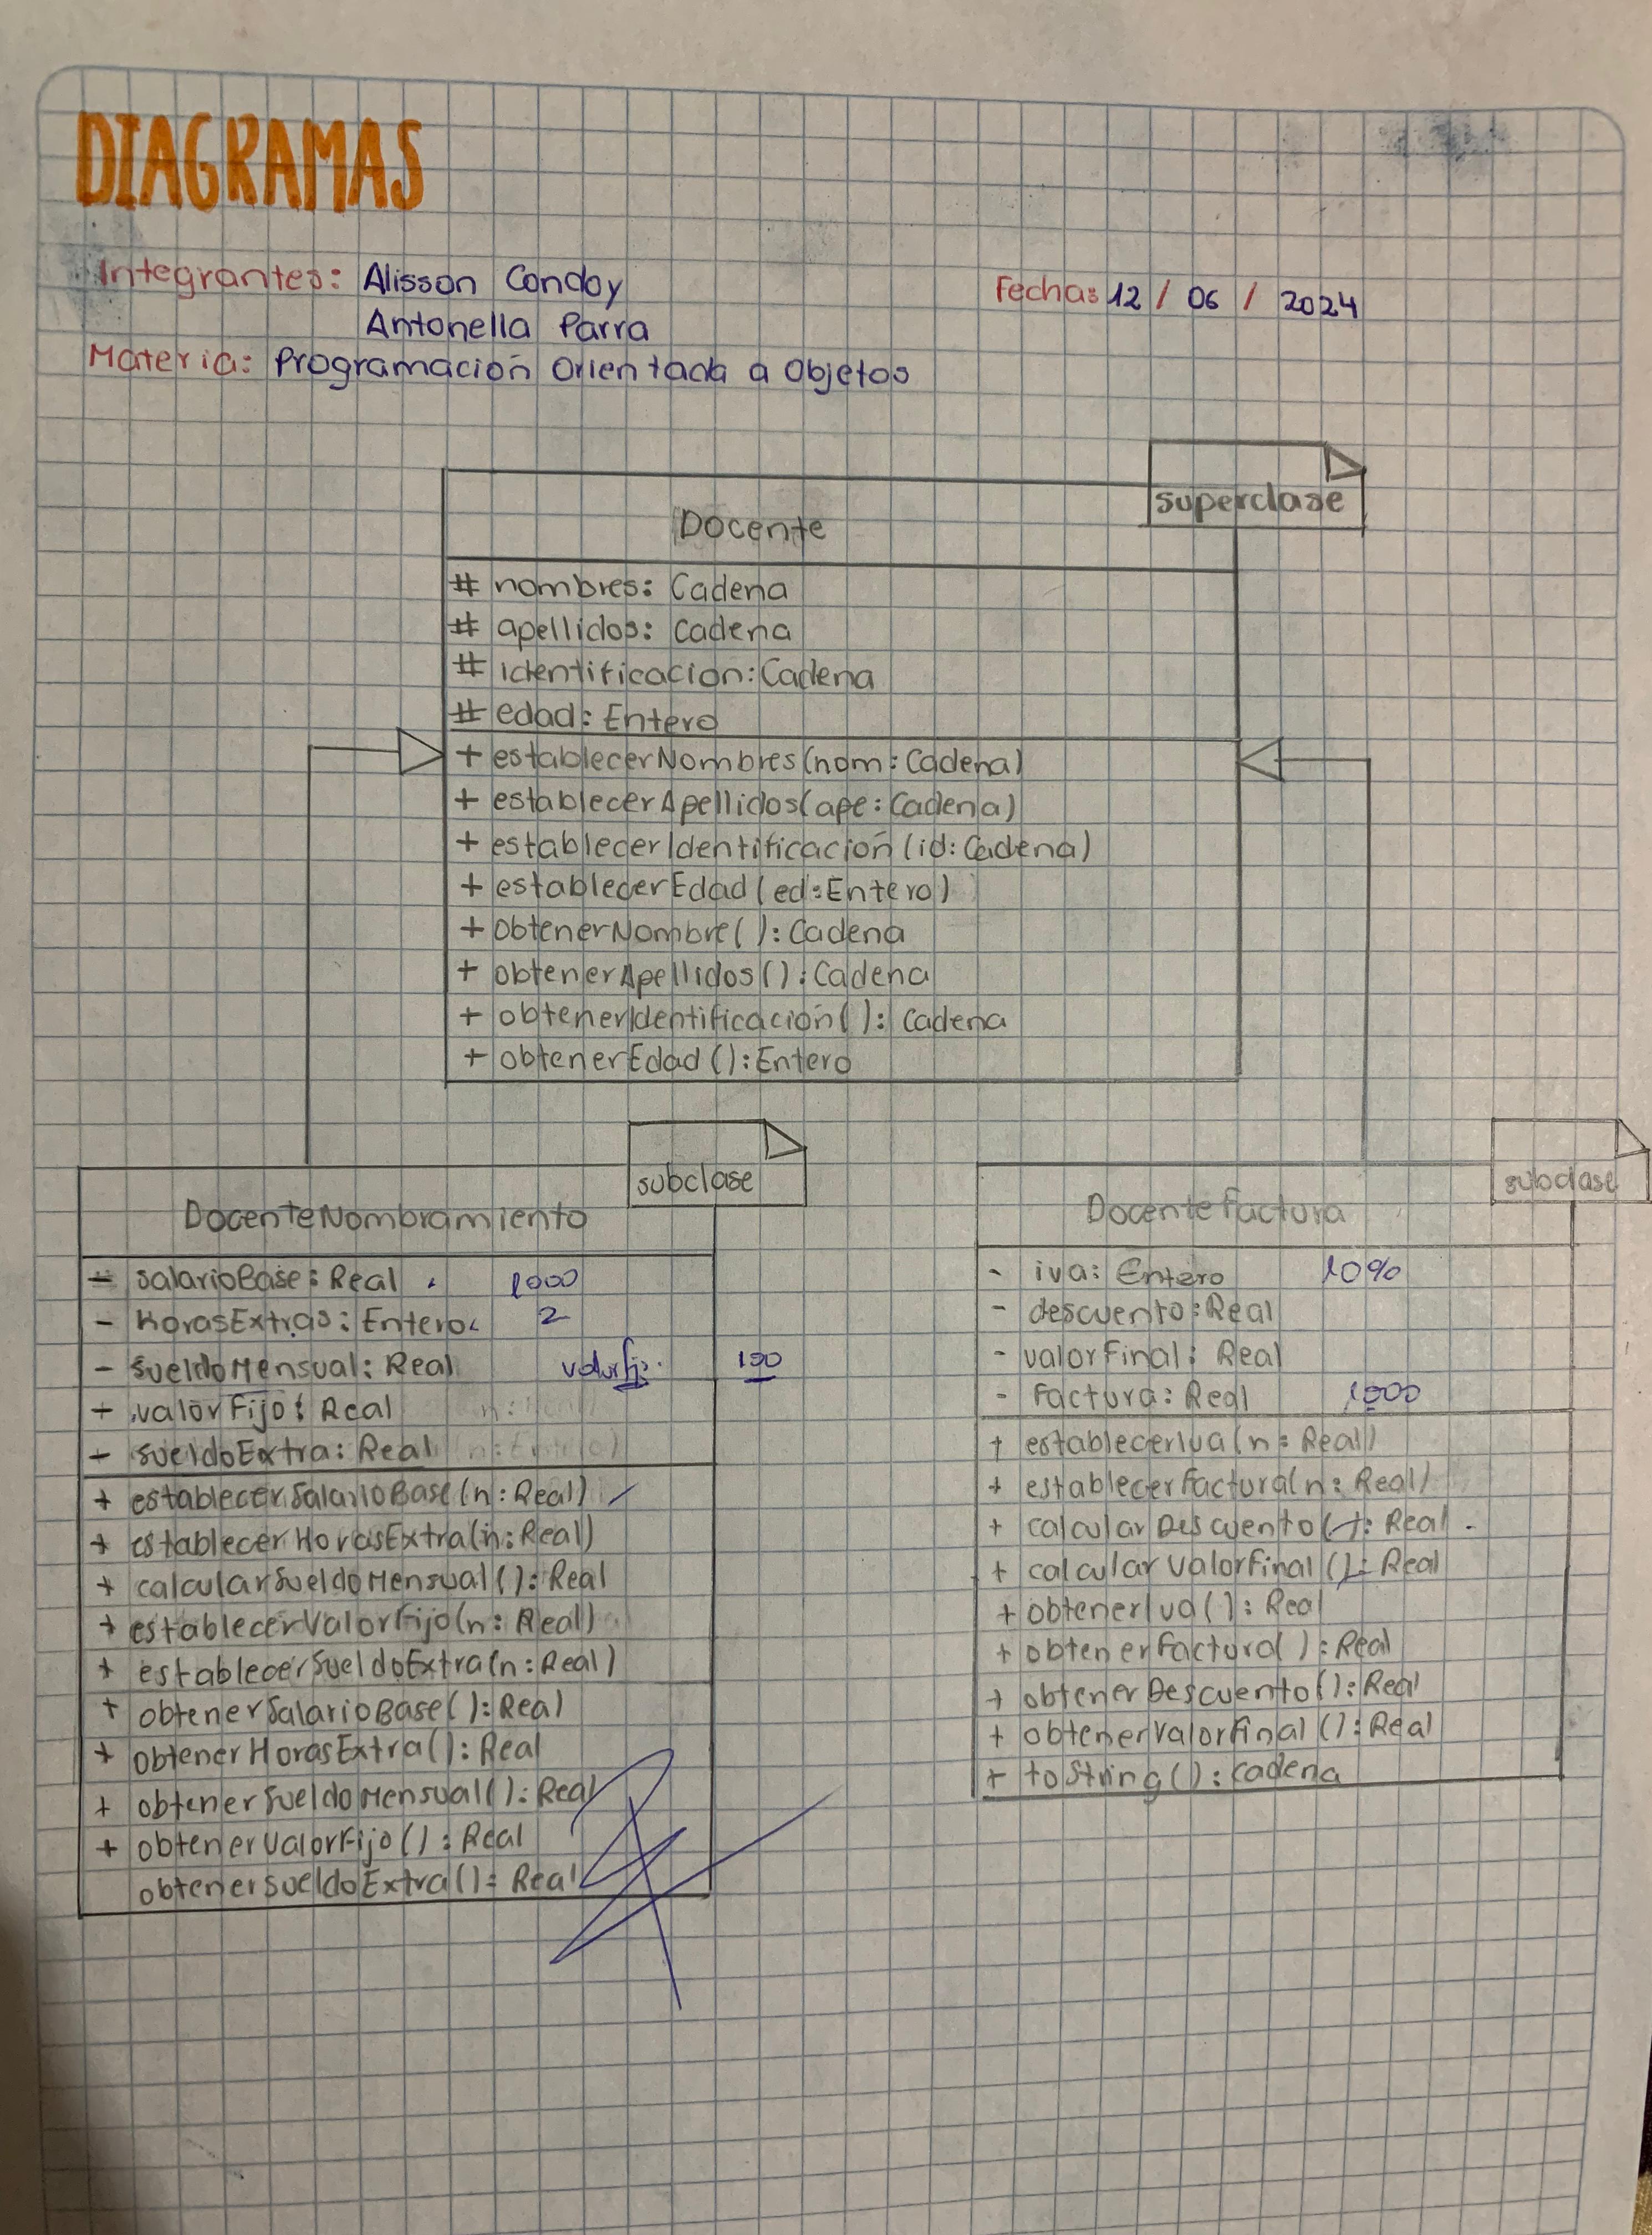 DIAGRAMAS
Integrantes: Alisson Condoy
Fecha: 12 / 06 / 2024
Antonella Parra
Materia: Programación Orientada a Objetos
superclase
Docente
# nombres: Cadena
# apellidos: Cadena
# identificacion: Cadena
# edad: Entero
+ establecerNombres(nom: Cadena)
+ establecerApellidos(ape: Cadena)
+ establecerIdentificación(id: Cadena)
+ establecerEdad(ed: Entero)
+ ObtenerNombre(): Cadena
+ obtenerApellidos(): Cadena
+ obtenerIdentificación(): Cadena
+ obtenerEdad(): Entero
subclase
DocenteNombramiento
- salarioBase: Real 1000
- horasExtras: Entero 2
- sueldoMensual: Real valorfijo 100
+ valorFijo: Real
- sueldoExtra: Real
+ establecerSalarioBase(n: Real)
+ establecerHorasExtra(n: Real)
+ calcularSueldoMensual(): Real
+ establecerValorFijo(n: Real)
+ establecerSueldoExtra(n: Real)
+ obtenerSalarioBase(): Real
+ obtenerHorasExtra(): Real
+ obtenerSueldoMensual(): Real
+ obtenerValorFijo(): Real
obtenerSueldoExtra(): Real
subclase
DocenteFactura
- iva: Entero 10%
- descuento: Real
- valorFinal: Real
- factura: Real 1000
+ establecerIva(n: Real)
+ establecerFactura(n: Real)
+ calcularDescuento(): Real
+ calcularValorFinal(): Real
+ obtenerIva(): Real
+ obtenerFactura(): Real
+ obtenerDescuento(): Real
+ obtenerValorFinal(): Real
+ toString(): cadena